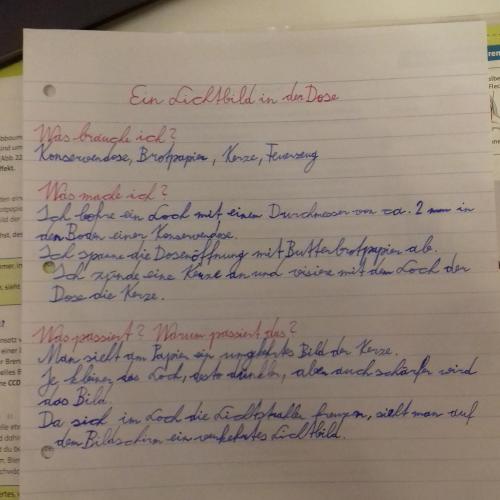 Ein Lichtbild in der Dose
Was brauche ich?
Konservendose, Brotpapier, Kerze, Feuerzeug
Was mache ich?
Ich bohre ein Loch mit einem Durchmesser von ca. 2 mm in
den Boden einer Konservendose.
Ich spanne die Dosenöffnung mit Butterbrotpapier ab.
Ich zünde eine Kerze an und visiere mit dem Loch der
Dose die Kerze.
Was passiert? Warum passiert das?
Man sieht am Papier ein umgekehrtes Bild der Kerze.
Je kleiner das Loch, desto dunkler, aber auch schärfer wird
das Bild.
Da sich im Loch die Lichtstrahlen kreuzen, sieht man auf
dem Bildschirm ein verkehrtes Lichtbild.